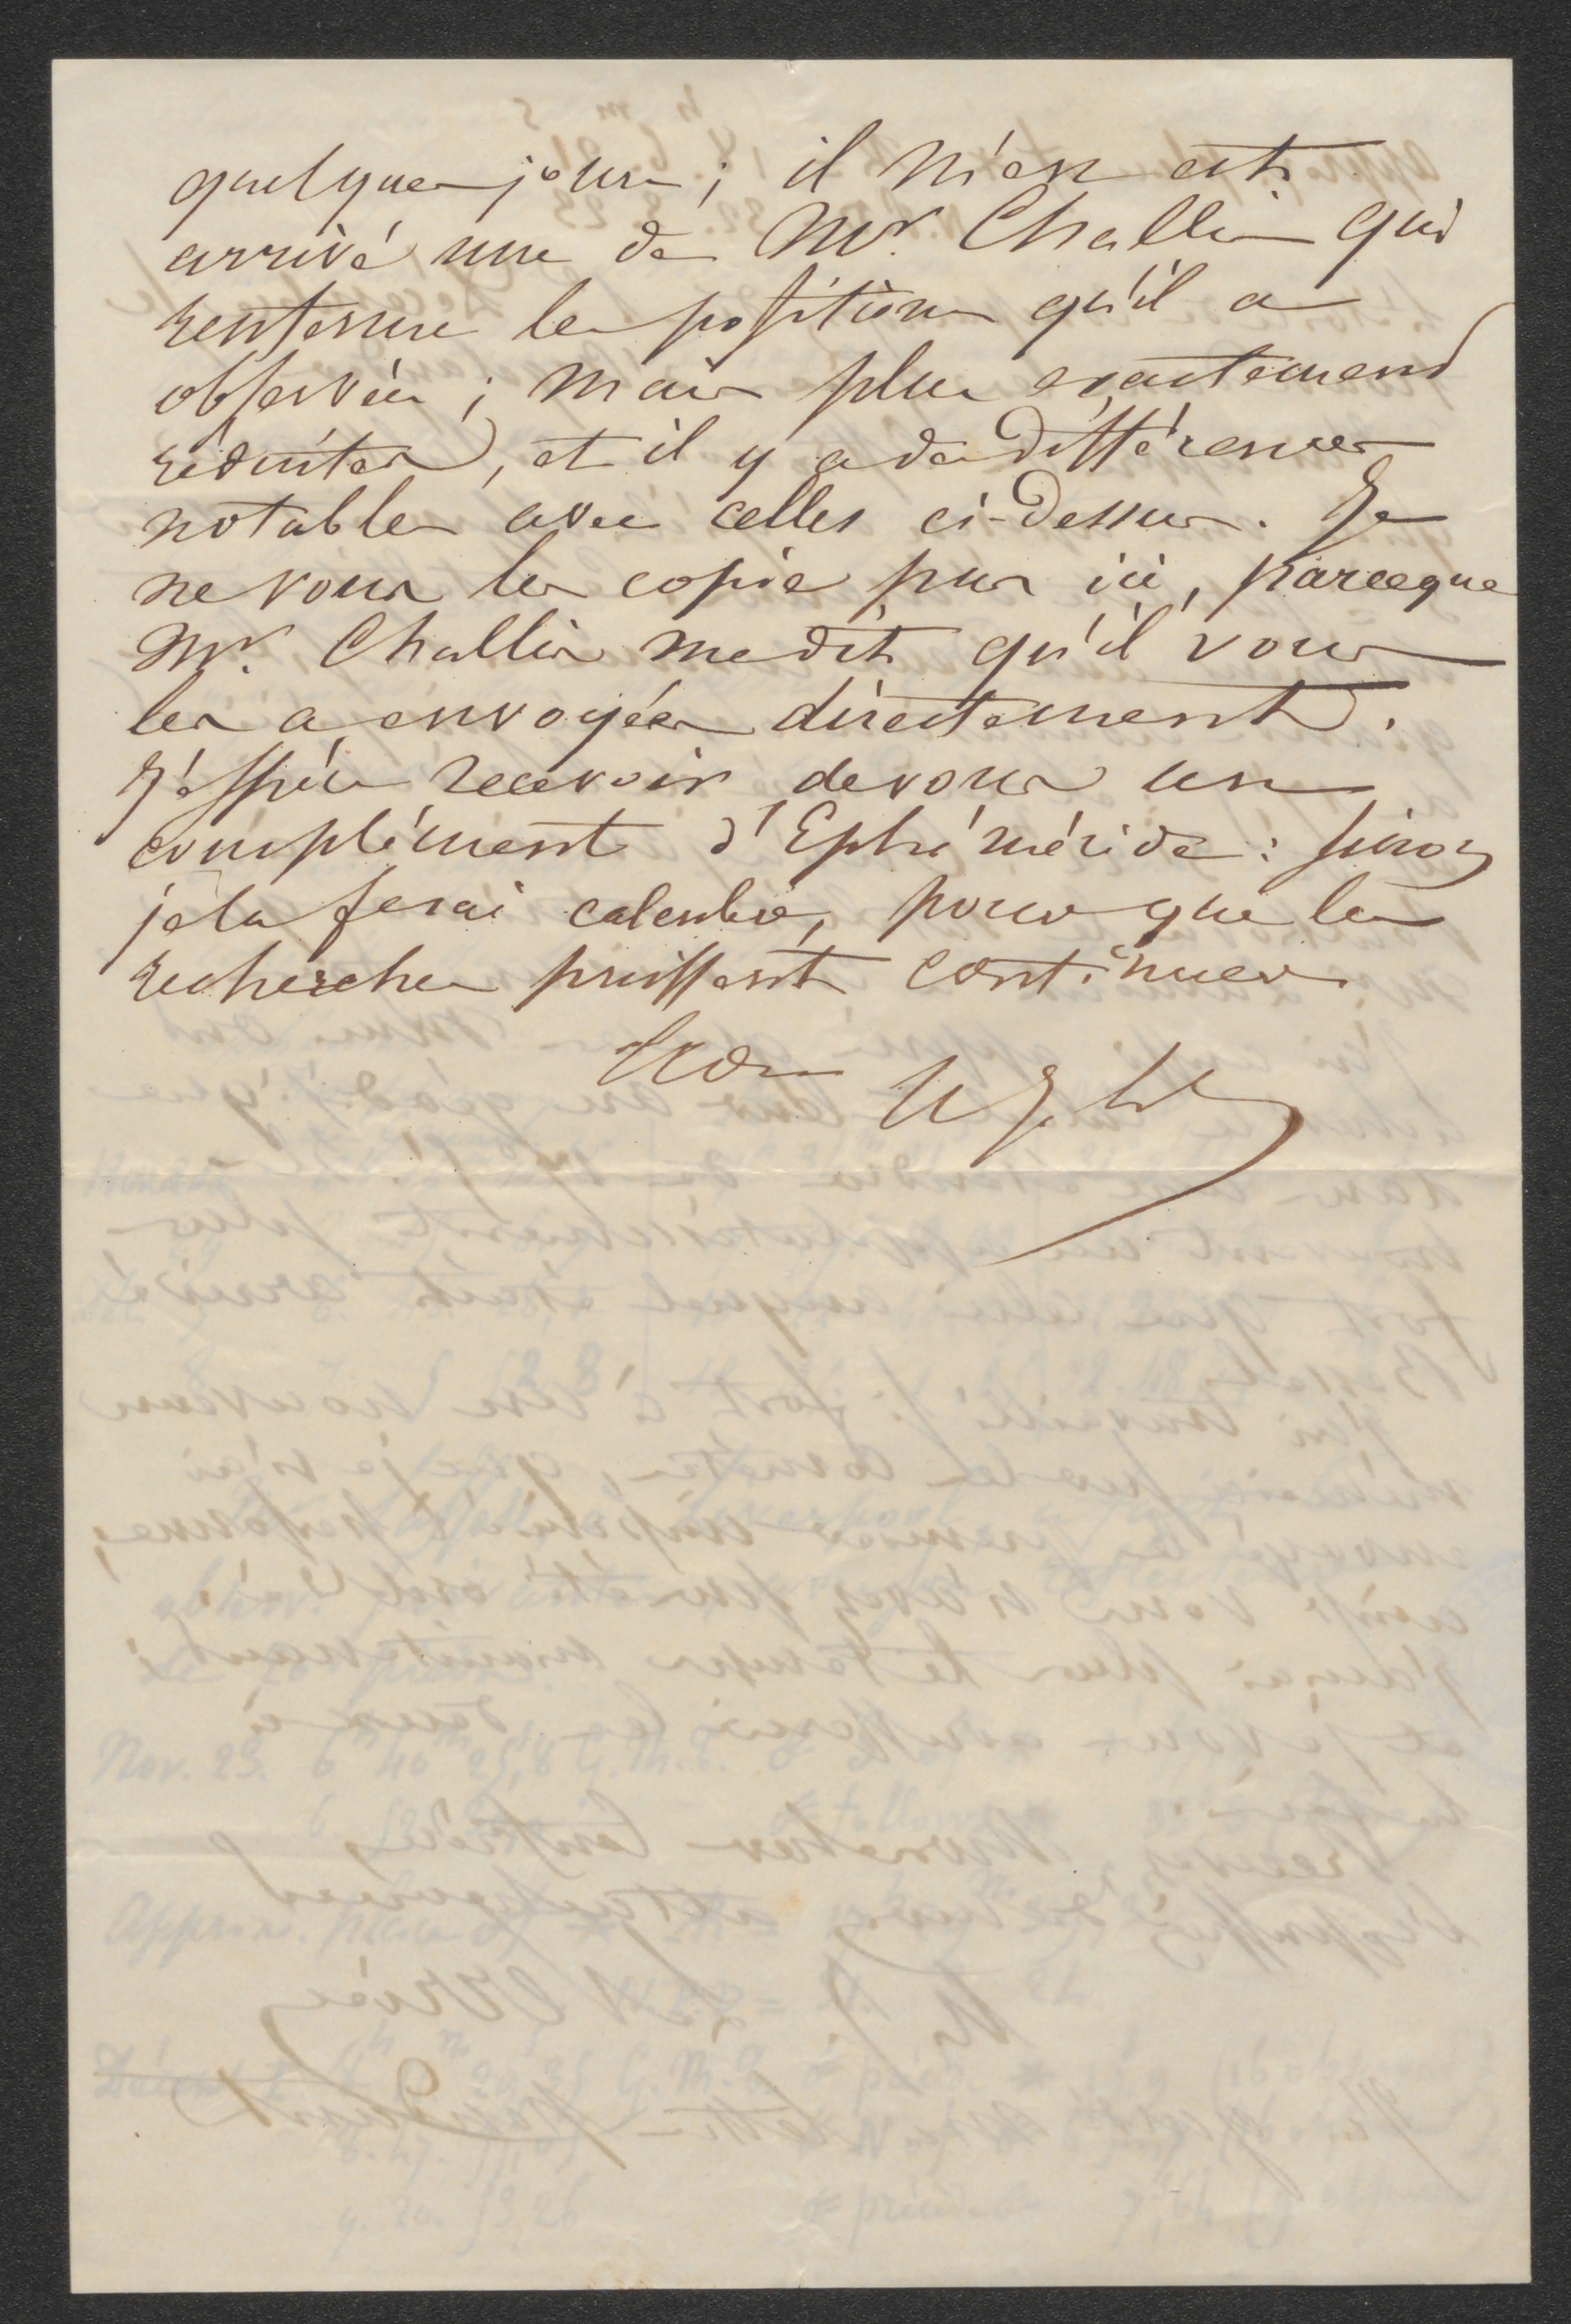 quelques jours ; il m'en est
arrivé une de Mr. Challis qui
renferme les positions qu'il a
observées ; mais plus exactement
réduites, et il y a des différences
notables avec celles ci-dessus. Je
ne vous les copie pas ici, parceque
Mr. Challis me dit qu'il vous
les a envoyées directement.
J'espère recevoir de vous un
complément d'Ephéméride : sinon
je la ferai calculer, pour que les
recherches puissent continuer.